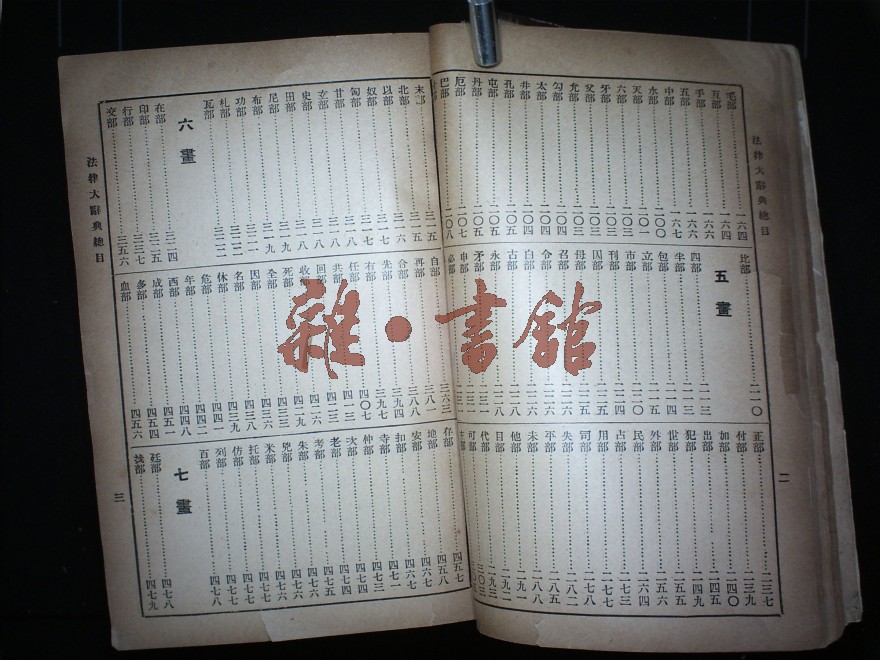 法律大辭典總目
毛部 一六四
互部 一六四
手部 一六六
五部 一六六
中部 一六七
天部 二〇一
六部 二〇三
牙部 二〇三
父部 二〇三
允部 二〇三
勾部 二〇四
太部 二〇四
井部 二〇四
孔部 二〇五
屯部 二〇五
丹部 二〇五
厄部 二〇七
巴部 二〇八
比部 二一〇
五畫
四部 二一三
半部 二一四
包部 二一五
立部 二二〇
市部 二二四
刊部 二二五
囚部 二二五
母部 二二五
召部 二二六
令部 二二六
白部 二二六
古部 二二八
永部 二二八
矛部 二三一
申部 二三一
必部
正部 二三七
付部 二三九
加部 二四〇
出部 二四五
犯部 二四九
世部 二五五
外部 二五五
民部 二六四
占部 二七三
用部 二七七
司部 二七八
失部 二八二
平部 二八五
未部 二八八
他部 二九一
目部 二九二
代部 二九三
可部 三〇三
二
末部 三一五
北部 三一六
以部 三一七
奴部 三一七
匈部 三一七
甘部 三一八
玄部 三一八
史部 三一八
田部 三一九
尼部 三一九
布部
功部
札部
瓦部
六畫
在部
印部 三二五
行部 三三七
交部 三五六
自部 三六三
再部 三八一
合部 三八八
先部 三九四
有部 三九七
任部 四〇七
共部 四一三
回部 四二三
收部 四二六
死部 四二九
全部 四三三
因部 四三八
名部 四三九
休部 四四一
危部 四四二
年部 四四八
西部 四五一
成部 四五四
多部 四五四
血部 四五六
存部 四五七
地部 四五八
安部 四六七
扣部 四六七
寺部 四七一
仲部 四七三
次部 四七四
老部 四七四
考部 四七五
朱部 四七六
兇部 四七六
米部 四七七
托部 四七七
仿部 四七七
列部 四七七
百部 四七八
七畫
廷部 四七八
找部 四七九
法律大辭典總目
三
雜·書館